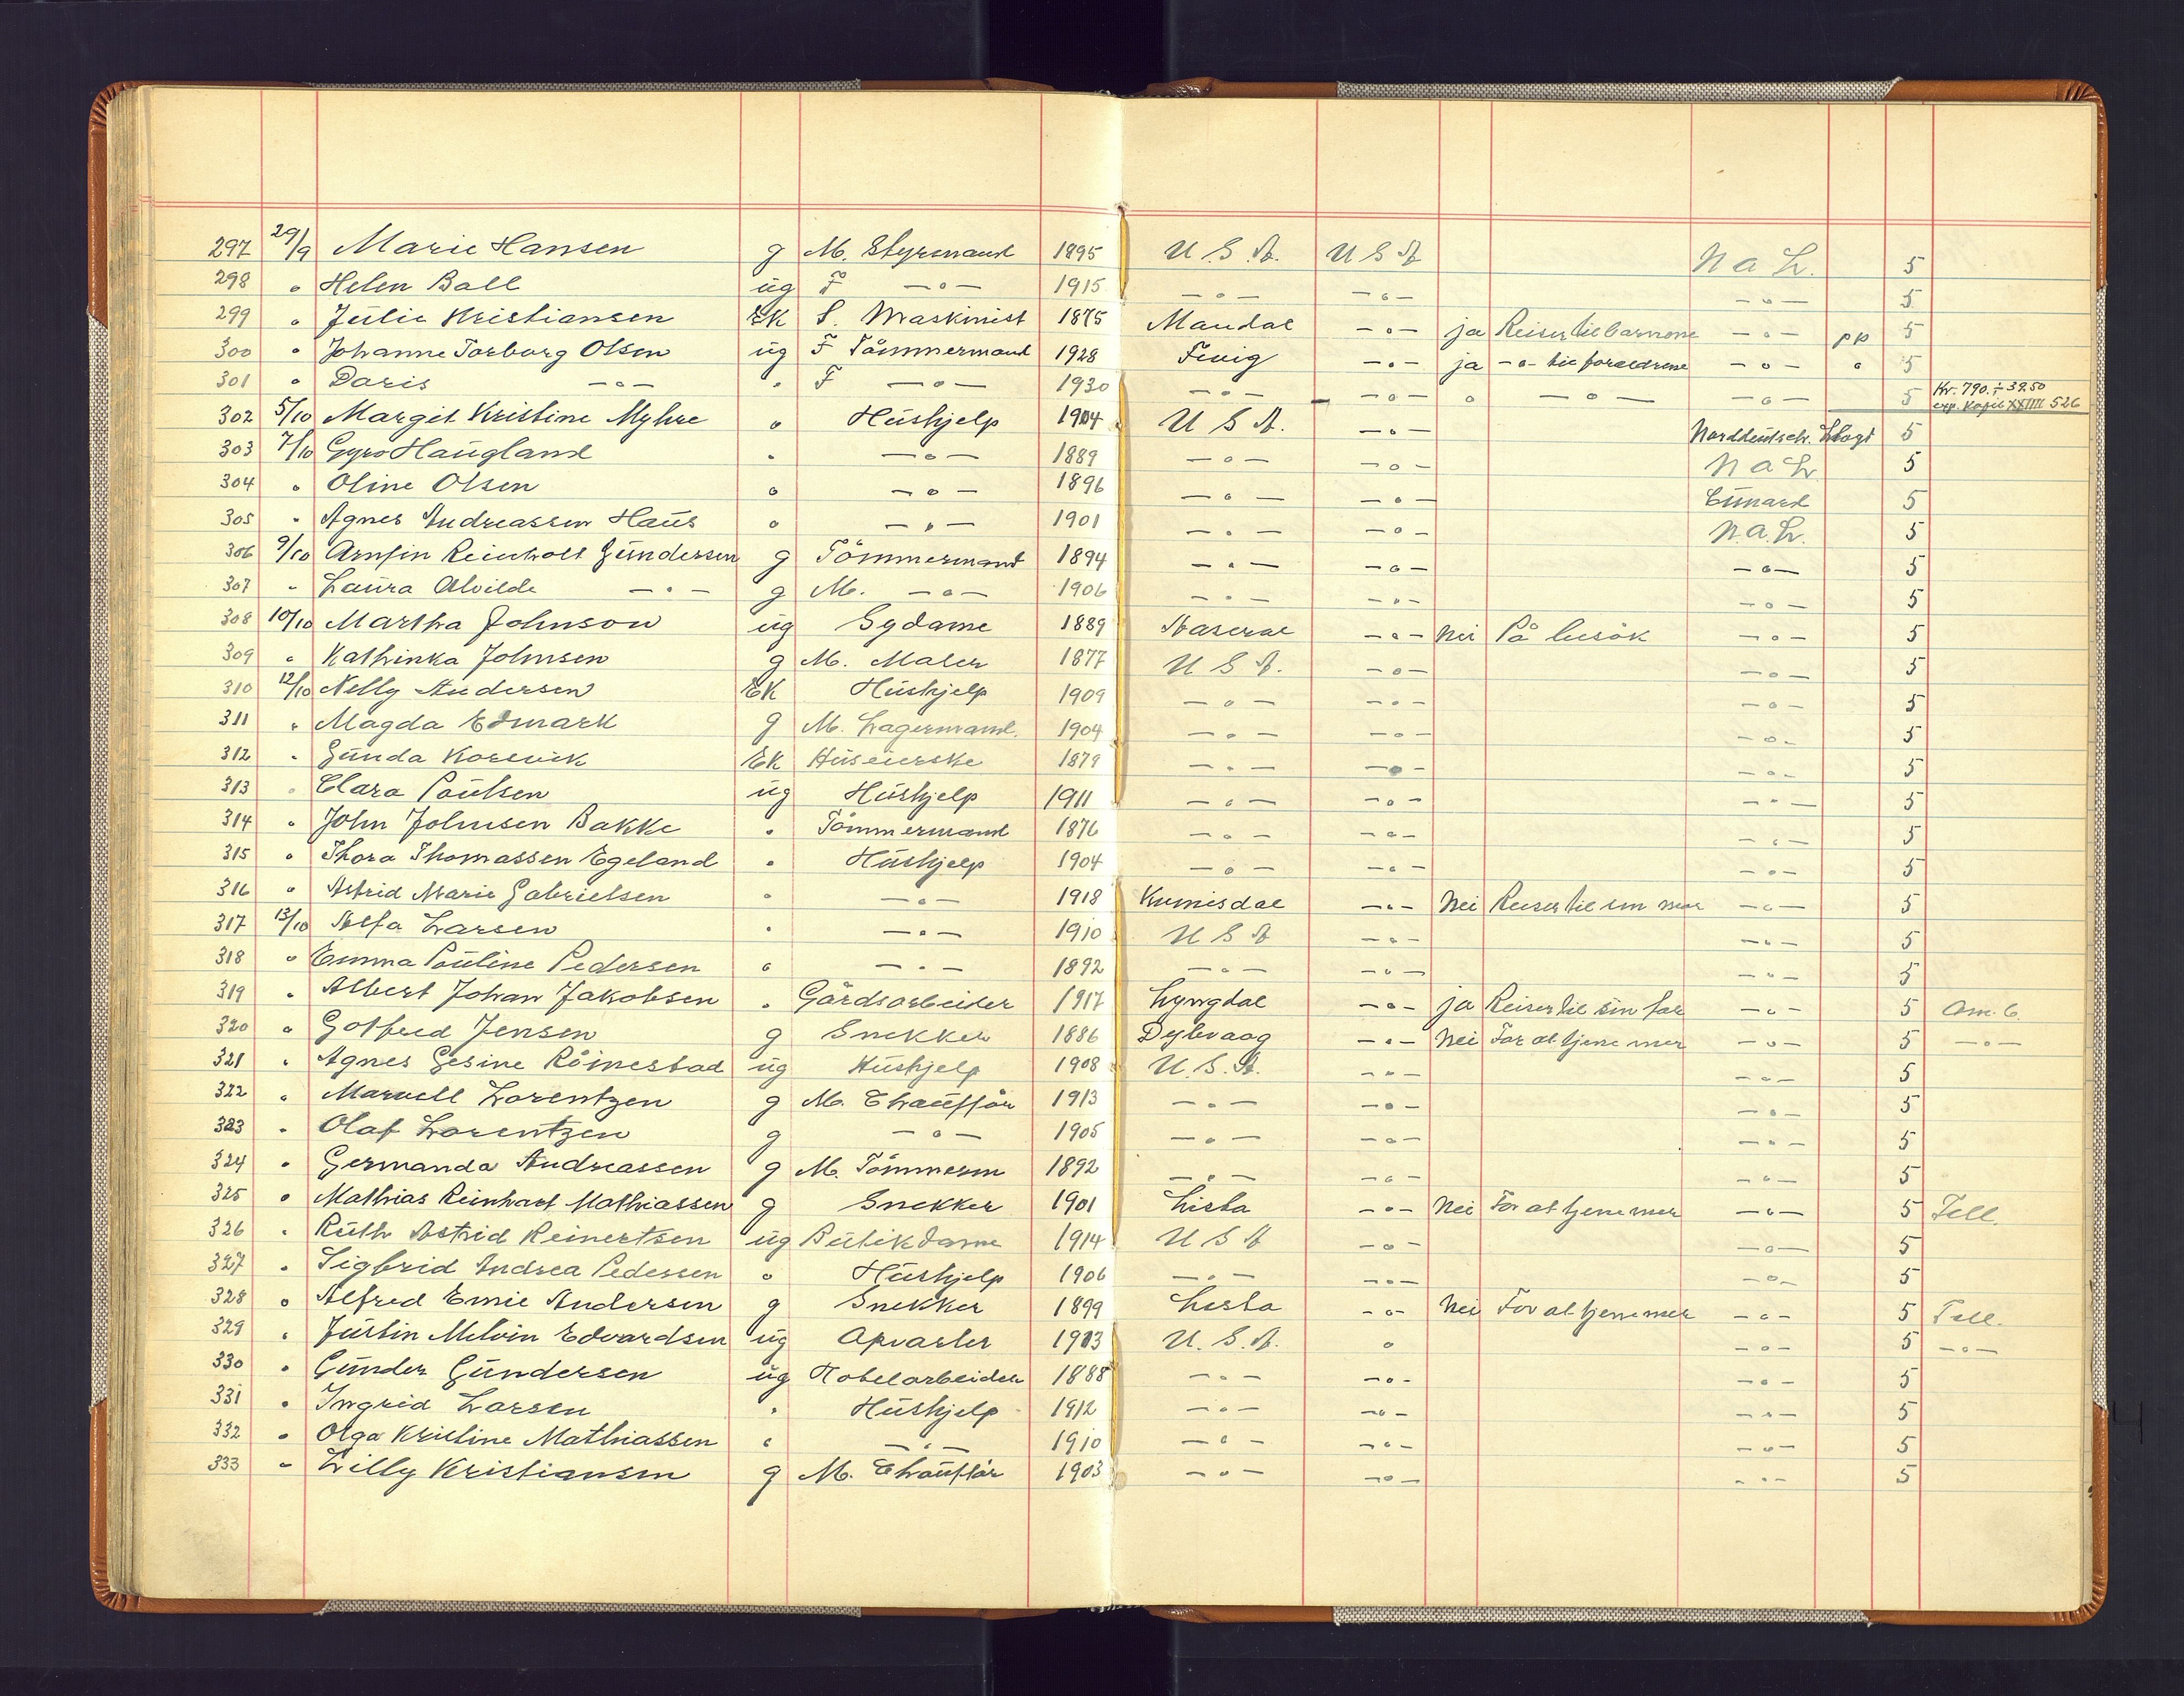 297 29/9 Marie Hansen g M. Styrmand 1895 U.S.A. U S A N a L. 5
298 " Helen Ball ug F —"— 1915 —"— —"— —"— 5
299 " Julie Kristiansen EK S. Maskinist 1875 Mandal —"— ja Reiser til barnene —"— pp 5
300 " Johanne Torborg Olsen ug F Tömmermand 1928 Fevig —"— ja —"— til foreldrene —"— " 5
301 " Doris —"— " F —"— 1930 —"— —"— " —"— —"— 5 Kr. 790.÷39.50
exp. Kopib XXIIII 526
302 5/10 Margit Kristine Myhre " Hushjelp 1904 U S A. —"— Norddeutsch. Lloyd 5
303 7/10 Gyro Haugland " —"— 1889 —"— —"— N a L 5
304 " Oline Olsen " —"— 1896 —"— —"— Cunard 5
305 " Agnes Andreassen Haus " —"— 1901 —"— —"— N.a.L. 5
306 9/10 Arnfin Reinholt Gundersen g Tömmermand 1894 —"— —"— —"— 5
307 " Laura Alvilde —"— g M. —"— 1906 —"— —"— —"— 5
308 10/10 Martha Johnson ug Sydame 1889 Aaseral —"— Nei På besök —"— 5
309 " Kathinka Johnsen g M. Maler 1877 U S A. —"— —"— 5
310 12/10 Nelly Andersen EK Hushjelp 1909 —"— —"— —"— 5
311 " Magda Edmark g M. Lagermand. 1904 —"— —"— —"— 5
312 " Gunda Korevik EK Huseierske 1879 —"— —"— —"— 5
313 " Clara Poulsen ug Hushjelp 1911 —"— —"— —"— 5
314 " John Johnsen Bakke " Tömmermand 1876 —"— —"— —"— 5
315 " Thora Thomassen Egeland " Hushjelp 1904 —"— —"— —"— 5
316 " Astrid Marie Gabrielsen " —"— 1918 Kvinisdal —"— Nei Reiser til sin mor —"— 5
317 13/10 Alfa Larsen " —"— 1910 U S A —"— —"— 5
318 " Emma Pauline Pedersen " —"— 1892 —"— —"— —"— 5
319 " Albert Johan Jakobsen " Gårdsarbeider 1917 Lyngdal —"— ja Reiser til sin far —"— 5 Am. C.
320 " Gotfred Jensen g Snekker 1886 Dybvaag —"— Nei For at tjene mer —"— 5 —"—
321 " Agnes Gesine Röinestad ug Hushjelp 1908 U.S.A. —"— —"— 5
322 " Marvell Lorentzen g M. Chaufför 1913 —"— —"— —"— 5
323 " Olaf Lorentzen g —"— 1905 —"— —"— —"— 5
324 " Germanda Andreassen g M. Tömmerm 1892 —"— —"— —"— 5
325 " Mathias Reinhart Mathiassen g Snekker 1901 Lista —"— Nei For at tjene mer —"— 5 Fell.
326 " Ruth Astrid Reinertsen ug Butikdame 1914 U S A —"— —"— 5
327 " Sigbrid Andrea Pedersen " Hushjelp 1906 —"— —"— —"— 5
328 " Alfred Emil Andersen g Snekker 1899 Lista —"— Nei For at tjene mer —"— 5 Fell.
329 " Justin Melvin Edvardsen ug Opvarter 1913 U.S.A. " —"— 5 —"—
330 " Gunder Gundersen ug Kabelarbeider 1888 —"— —"— —"— 5
331 " Ingrid Larsen " Hushjelp 1912 —"— —"— —"— 5
332 " Olga Kristine Mathiassen " —"— 1910 —"— —"— —"— 5
333 " Lilly Kristiansen g M. Chaufför 1903 —"— —"— —"— 5